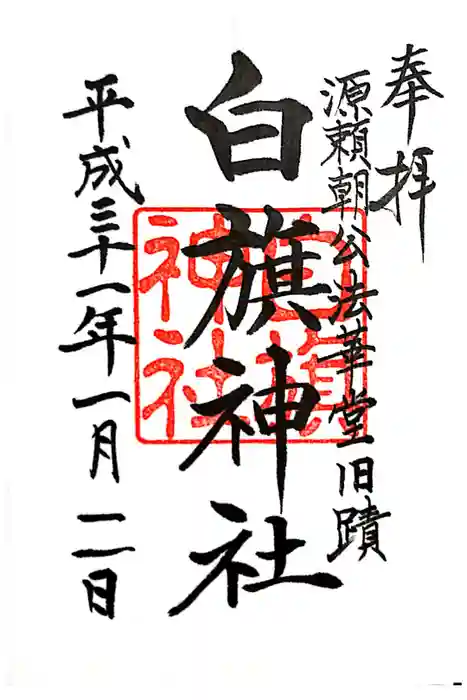 奉拝
源頼朝公法華堂旧蹟
白旗神社
白旗
神社
平成三十一年一月二日